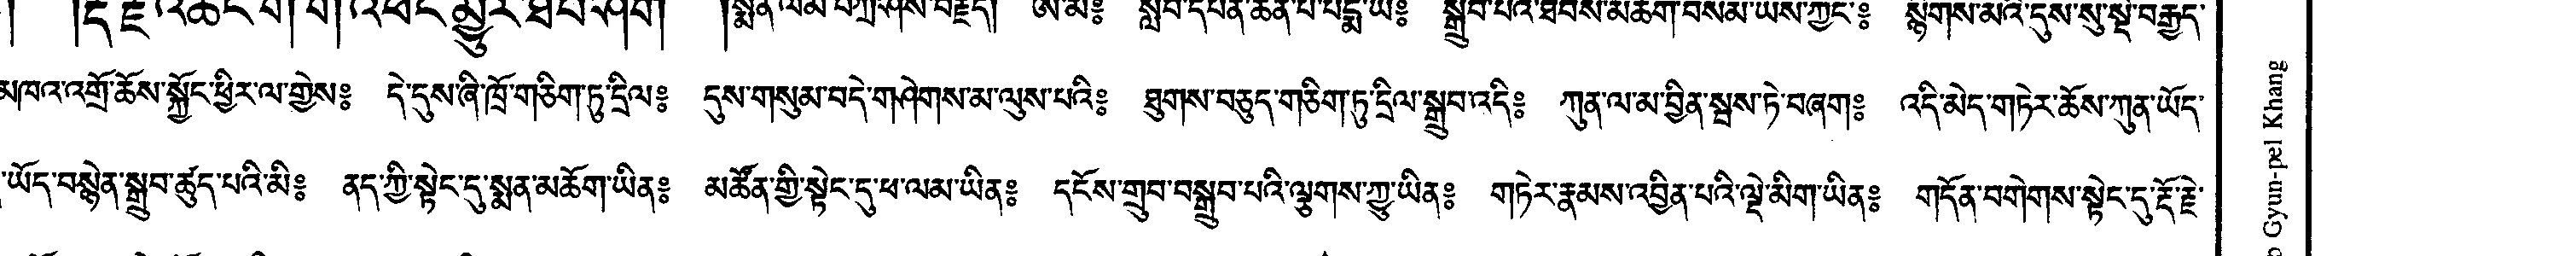 རྡོ་རྗེ་འཆང་བ། བ།འཕང་མྱུར་ཐོབ་ཤོག། །སྨོན་ལམ་བཀྲ་ཤིས་བརྗོད། ཨེ་མ༔ སློབ་དཔོན་ཆེན་པོ་པདྨ་ཡི༔ སྒྲུབ་པའི་ཐབས་མཆོག་བསམ་ཡས་ཀྱང་༔ སྙིགས་མའི་དུས་སུ་སྡེ་བརྒྱད་
མཁའ་འགྲོ་ཆོས་སྐྱོང་ཕྱིར་ལ་གྱེས༔ དེ་དུས་ཞི་ཁྲོ་གཅིག་ཏུ་དྲིལ༔ དུས་གསུམ་བདེ་གཤེགས་མ་ལུས་པའི༔ ཐུགས་བཅུད་གཅིག་ཏུ་དྲིལ་སྒྲུབ་འདི༔ ཀུན་ལ་མ་བྱིན་སྦས་ཏེ་བཞག༔ འདི་མེད་གཏེར་ཆོས་ཀུན་ཡོད་
ཡོད་བསྙེན་སྒྲུབ་ཚུད་པའི་མི༔ ནད་ཀྱི་སྟེང་དུ་སྨན་མཆོག་ཡིན༔ མཚོན་གྱི་སྟེང་དུ་ཕ་ལམ་ཡིན༔ དངོས་གྲུབ་བསྒྲུབ་པའི་ལྕགས་ཀྱུ་ཡིན༔ གཏེར་རྣམས་འབྱིན་པའི་ལྡེ་མིག་ཡིན༔ གདོན་བགེགས་སྟེང་དུ་རྡོ་རྗེ་
Gyun-pel Khang